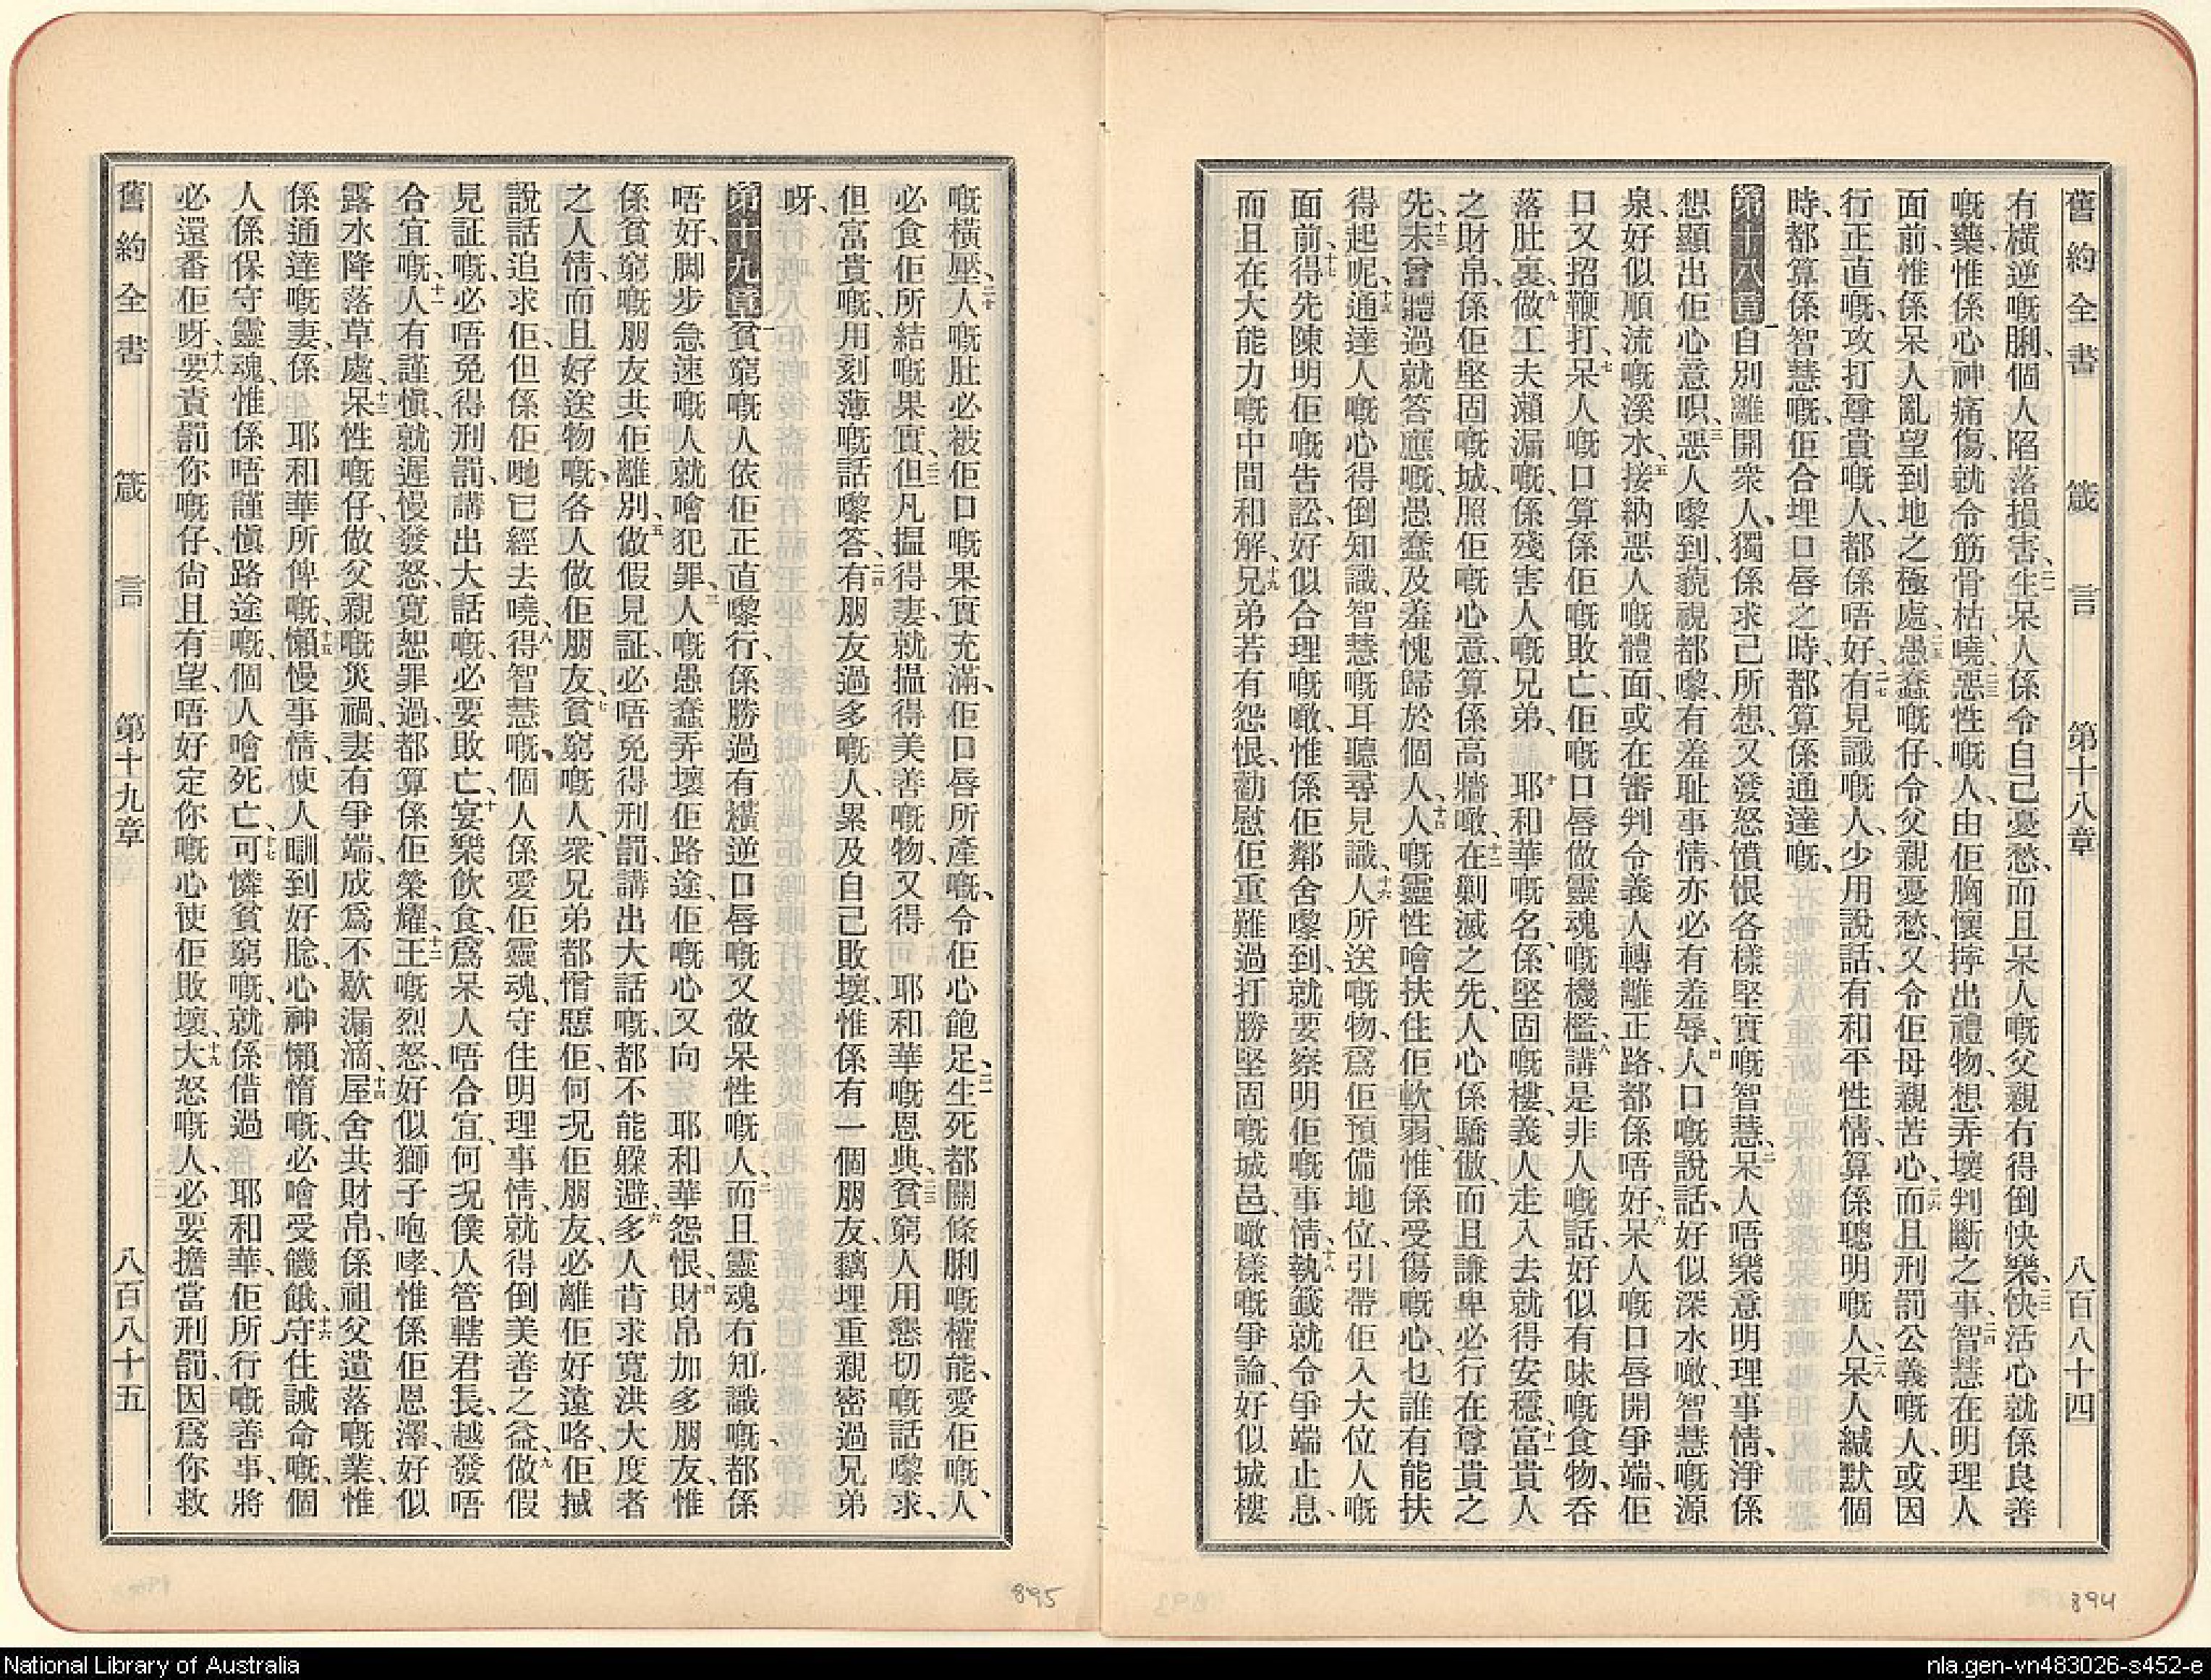 舊約全書　箴言　第十八章　八百八十四
有橫逆嘅脷、個人陷落損害、二一生呆人係令自己憂愁、而且呆人嘅父親冇得倒快樂、二二快活心就係良善
嘅藥、惟係心神痛傷、就令筋骨枯嘵、二三惡性嘅人、由佢胸懷擰出禮物、想弄壞判斷之事、二四智慧在明理人
面前、惟係呆人亂望到地之極處、二五愚蠢嘅仔、令父親憂愁、又令佢母親苦心、二六而且刑罰公義嘅人、或因
行正直嘅、攻打尊貴嘅人、都係唔好、二七有見識嘅人、少用說話、有和平性情、算係聰明嘅人、二八呆人緘默個
時、都算係智慧嘅、佢合埋口唇之時、都算係通達嘅、
第十八章一自別離開衆人、獨係求己所想、又發怒憤恨各樣堅實嘅智慧、二呆人唔樂意明理事情、淨係
想顯出佢心意呮、三惡人嚟到、藐視都嚟、有羞耻事情、亦必有羞辱、四人口嘅說話、好似深水噉、智慧嘅源
泉、好似順流嘅溪水、五接納惡人嘅體面、或在審判令義人轉離正路、都係唔好、六呆人嘅口唇開爭端、佢
口又招鞭打、七呆人嘅口、算係佢嘅敗亡、佢嘅口唇做靈魂嘅機檻、八講是非人嘅話、好似有味嘅食物、吞
落肚裏、九做工夫瀨漏嘅、係殘害人嘅兄弟、十耶和華嘅名、係堅固嘅樓、義人走入去就得安穩、十一富貴人
之財帛、係佢堅固嘅城、照佢嘅心意、算係高牆噉、十二在剿滅之先、人心係驕傲、而且謙卑必行在尊貴之
先、十三未曾聽過就答應嘅、愚蠢及羞愧歸於個人、十四人嘅靈性噲扶住佢軟弱、惟係受傷嘅心乜誰有能扶
得起呢、十五通達人嘅心得倒知識、智慧嘅耳聽尋見識、十六人所送嘅物、爲佢預備地位、引帶佢入大位人嘅
面前、十七得先陳明佢嘅告訟、好似合理嘅噉、惟係佢鄰舍嚟到、就要察明佢嘅事情、十八執籤就令爭端止息、
而且在大能力嘅中間和解、十九兄弟若有怨恨、勸慰佢重難過打勝堅固嘅城邑、噉樣嘅爭論、好似城樓
嘅橫壓、二十人嘅肚必被佢口嘅果實充滿、佢口唇所產嘅、令佢心飽足、二一生死都關係脷嘅權能、愛佢嘅人、
必食佢所結嘅果實、二二但凡揾得妻、就揾得美善嘅物、又得　耶和華嘅恩典、二三貧窮人用懇切嘅話嚟求、
但富貴嘅、用刻薄嘅話嚟答、二四有朋友過多嘅人、累及自己敗壞、惟係有一個朋友、黐埋重親密過兄弟
呀、
第十九章一貧窮嘅人依佢正直嚟行、係勝過有橫逆口唇嘅又做呆性嘅人、二而且靈魂冇知識嘅、都係
唔好、脚步急速嘅人就噲犯罪、三人嘅愚蠢弄壞佢路途、佢嘅心又向　耶和華怨恨、四財帛加多朋友、惟
係貧窮嘅朋友共佢離別、五做假見証、必唔免得刑罰、講出大話嘅、都不能躱避、六多人肯求寬洪大度者
之人情、而且好送物嘅、各人做佢朋友、七貧窮嘅人、衆兄弟都憎惡佢、何况佢朋友、必離佢好遠咯、佢搣
說話追求佢、但係佢哋已經去嘵、八得智慧嘅、個人係愛佢靈魂、守住明理事情、就得倒美善之益、九做假
見証嘅、必唔免得刑罰、講出大話嘅、必要敗亡、十宴樂飲食、爲呆人唔合宜、何况僕人管轄君長、越發唔
合宜嘅、十一人有謹愼、就遲慢發怒、寬恕罪過、都算係佢榮耀、十二王嘅烈怒、好似獅子咆哮、惟係佢恩澤、好似
露水降落草處、十三呆性嘅仔、做父親嘅災禍、妻有爭端、成爲不歇漏滴、十四屋舍共財帛、係祖父遺落嘅業、惟
係通達嘅妻、係　耶和華所俾嘅、十五懶慢事情、使人瞓到好腍、心神懶惰嘅、必噲受饑餓、十六守住誡命嘅、個
人係保守靈魂、惟係唔謹愼路途嘅、個人噲死亡、十七可憐貧窮嘅、就係借過　耶和華、佢所行嘅善事、將
必還番佢呀、十八要責罰你嘅仔、尙且有望、唔好定你嘅心使佢敗壞、十九大怒嘅人、必要擔當刑罰、因爲你救
舊約全書　箴言　第十九章　八百八十五
894
895
National Library of Australia
nla.gen-vn483026-s452-e